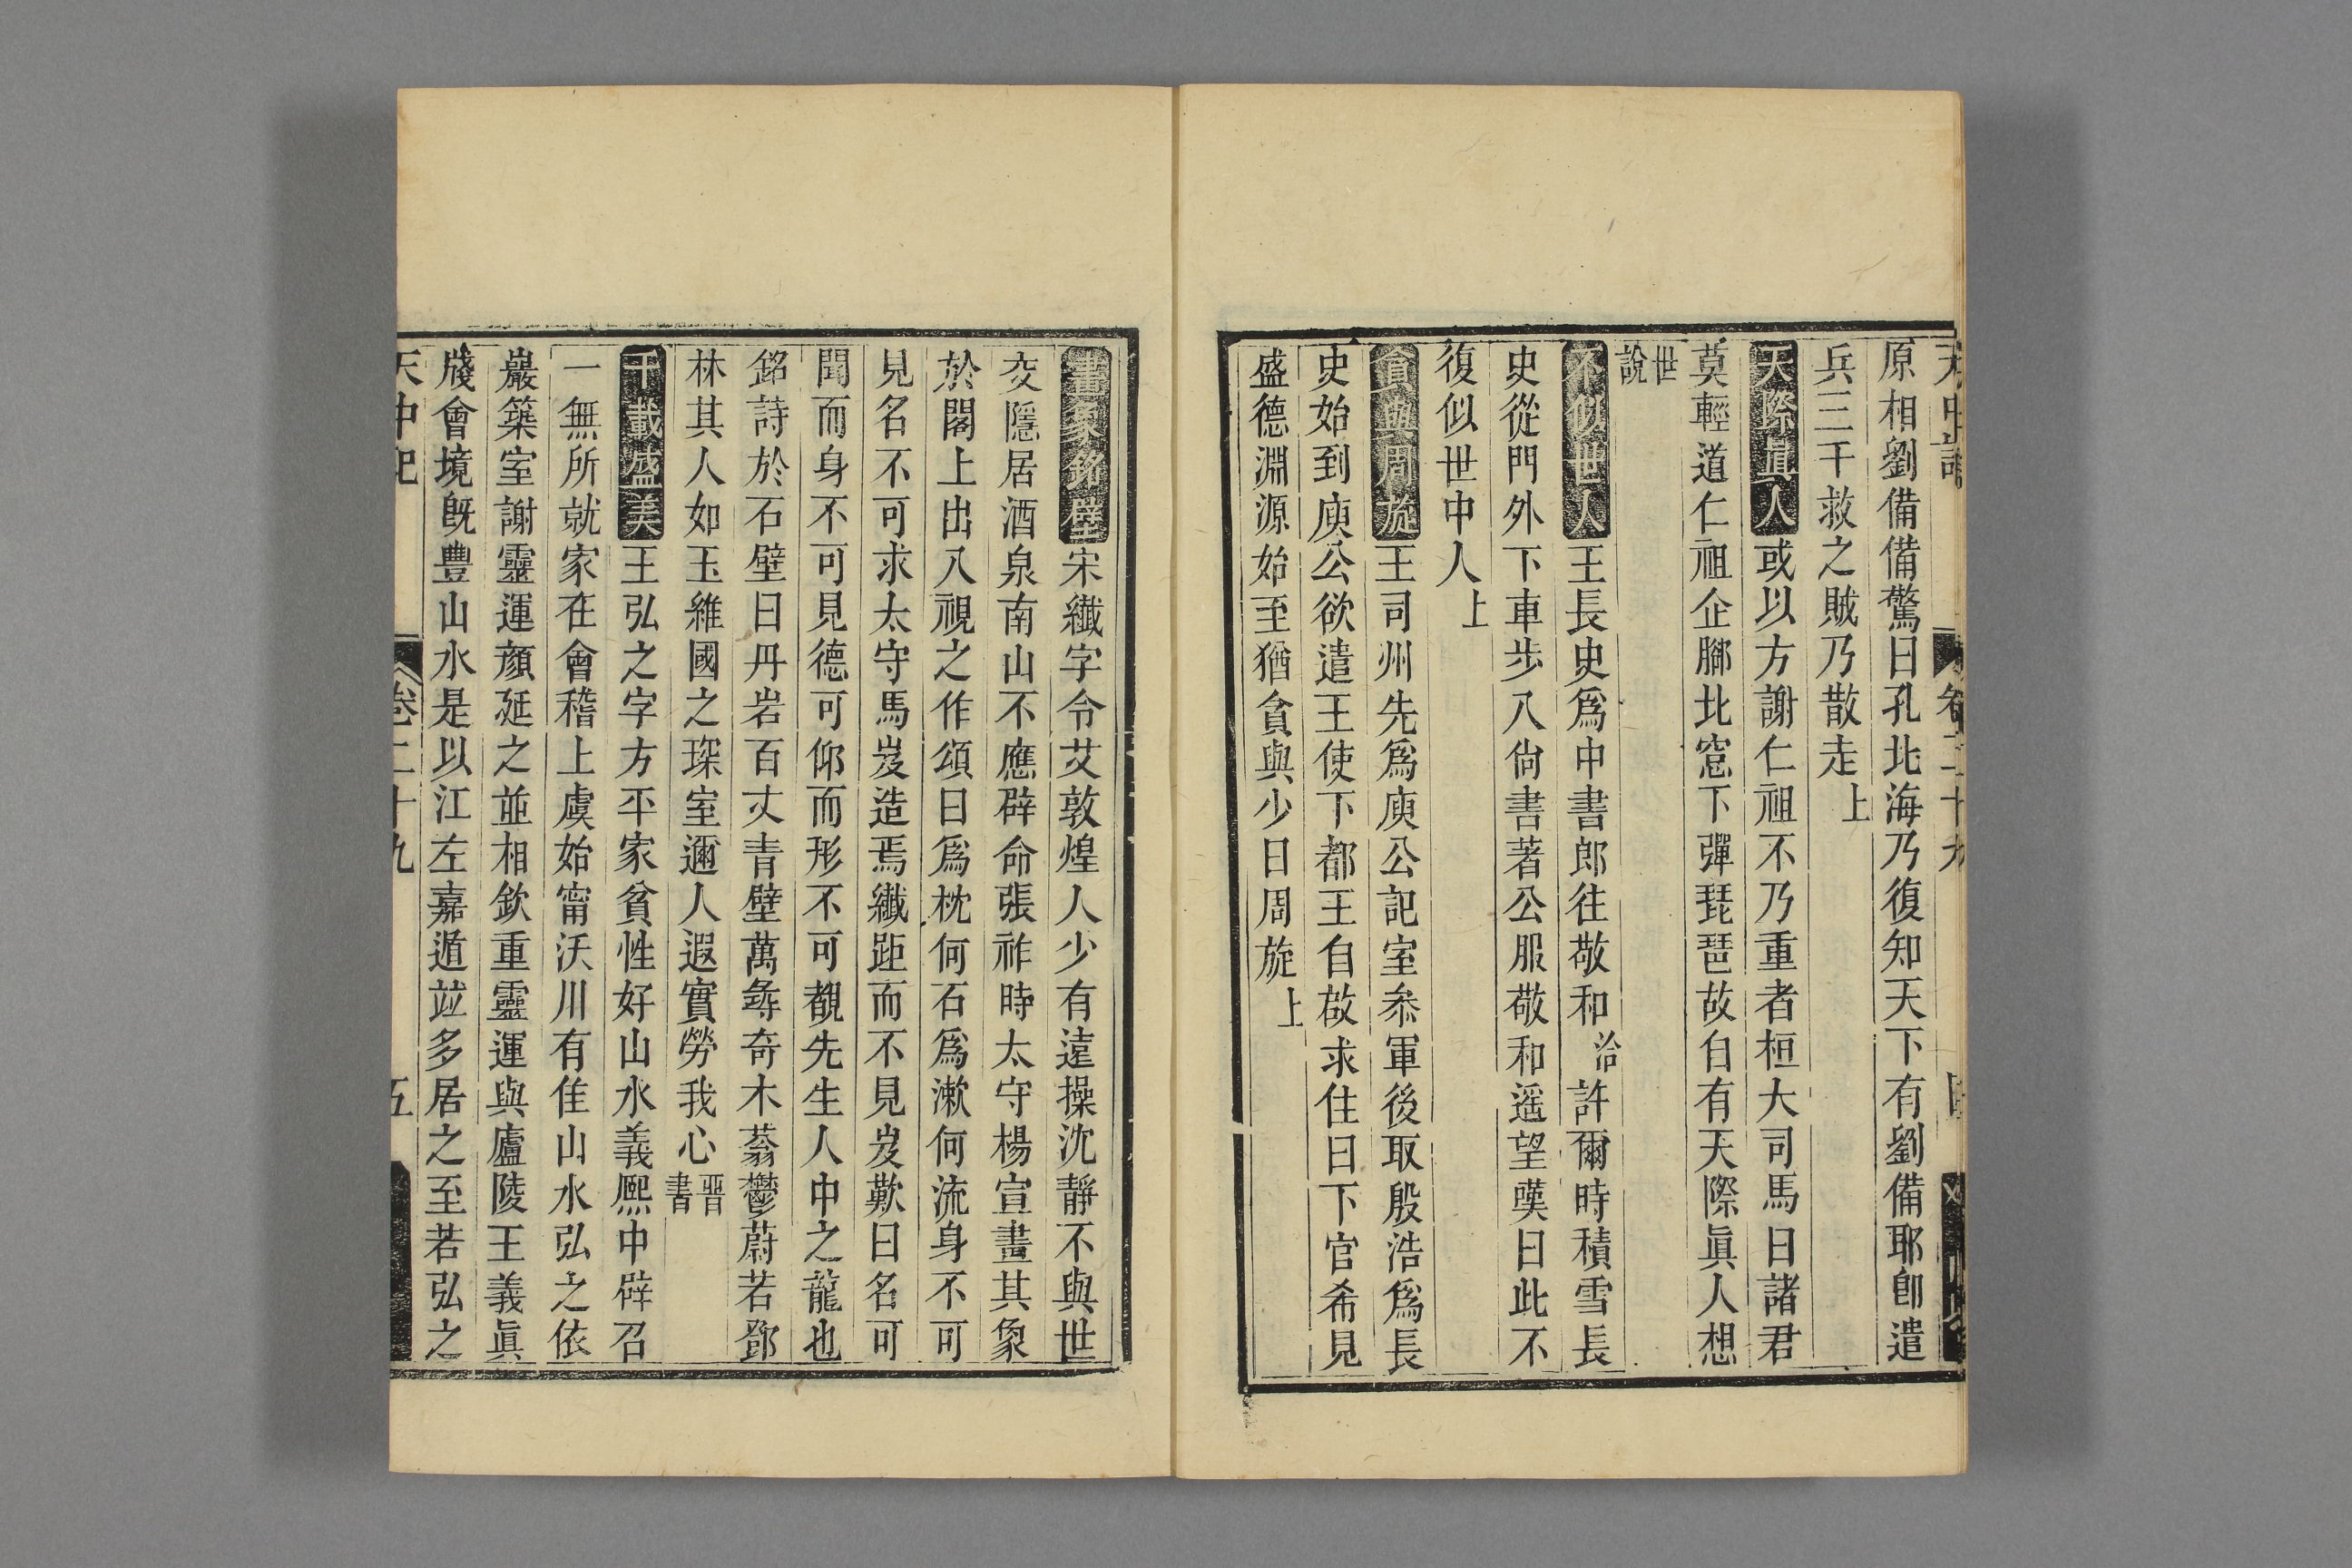 原相劉備備驚曰孔北海乃復知天下有劉備耶卽遣
兵三千救之賊乃散走上
天際眞人或以方謝仁祖不乃重者桓大司馬曰諸君
莫輕道仁祖企腳北窻下彈琵琶故自有天際眞人想
世說
不似世人王長史爲中書郎往敬和洽許爾時積雪長
史從門外下車步入尙書著公服敬和遥望嘆曰此不
復似世中人上
貪與周旋王司州先爲庾公記室叅軍後取殷浩爲長
史始到庾公欲遣王使下都王自啟求住曰下官希見
盛德淵源始至猶貪與少日周旋上
畫象銘壁宋纖字令艾敦煌人少有遠操沈靜不與世
交隱居酒泉南山不應辟命張祚時太守楊宣畫其象
於閣上出入視之作頌曰爲枕何石爲漱何流身不可
見名不可求太守馬岌造焉纖距而不見岌歎曰名可
聞而身不可見德可仰而形不可覩先生人中之龍也
銘詩於石壁曰丹岩百丈青壁萬尋奇木蓊鬱蔚若鄧
林其人如玉維國之琛室邇人遐實勞我心晉書
千載盛美王弘之字方平家貧性好山水義熙中辟召
一無所就家在會稽上虞始甯沃川有佳山水弘之依
巖築室謝靈運顏延之並相欽重靈運與廬陵王義眞
牋會境旣豐山水是以江左嘉遁竝多居之至若弘之
天中記
卷二十九
五